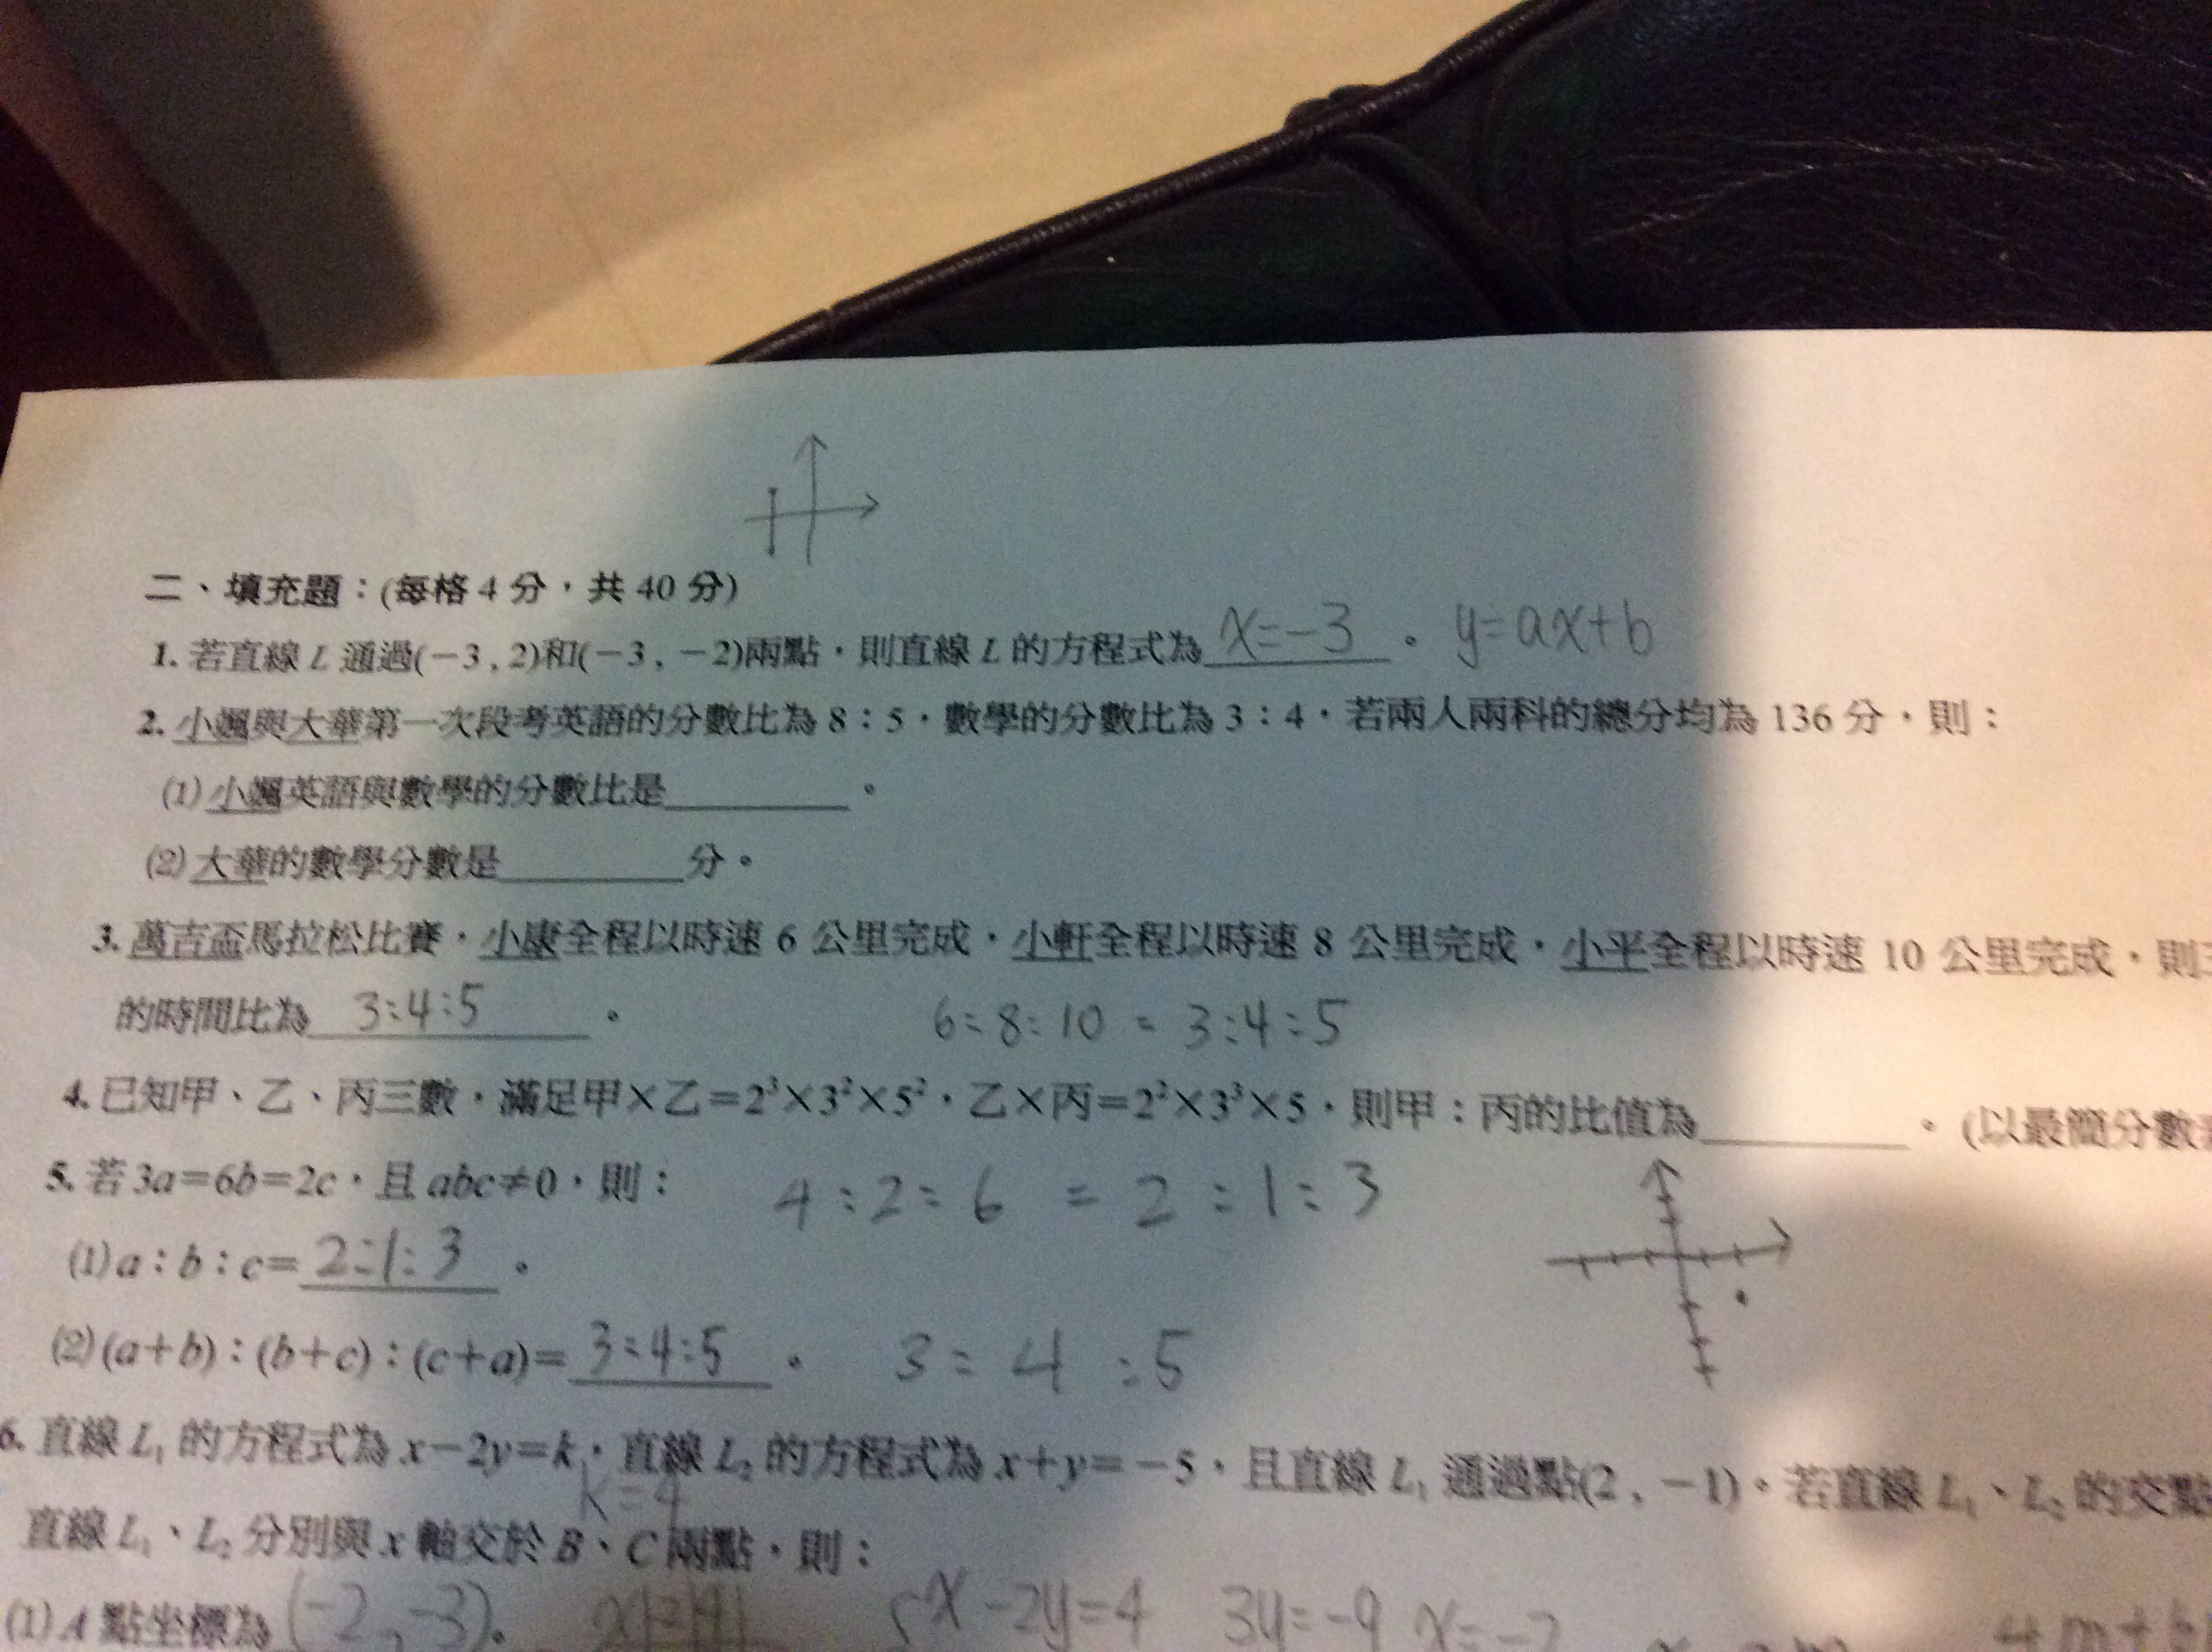 二、填充題：(每格 4 分，共 40 分)
1. 若直線 L 通過(−3, 2)和(−3, −2)兩點，則直線 L 的方程式為 x=-3 。 y=ax+b
2. 小颯與大華第一次段考英語的分數比為 8：5，數學的分數比為 3：4，若兩人兩科的總分均為 136 分，則：
(1) 小颯英語與數學的分數比是________。
(2) 大華的數學分數是________分。
3. 萬吉盃馬拉松比賽，小康全程以時速 6 公里完成，小軒全程以時速 8 公里完成，小平全程以時速 10 公里完成，則
的時間比為 3:4:5 。 6:8:10 = 3:4:5
4. 已知甲、乙、丙三數，滿足甲×乙=2³×3²×5²，乙×丙=2²×3³×5，則甲：丙的比值為________。(以最簡分數
5. 若 3a=6b=2c，且 abc≠0，則： 4:2:6 = 2:1:3
(1) a：b：c= 2:1:3 。
(2) (a+b)：(b+c)：(c+a)= 3:4:5 。 3:4:5
6. 直線 L₁ 的方程式為 x−2y=k，直線 L₂ 的方程式為 x+y=−5，且直線 L₁ 通過點(2, −1)。若直線 L₁、L₂ 的交點
k=4
直線 L₁、L₂ 分別與 x 軸交於 B、C 兩點，則：
(1) A 點坐標為 (-2,-3)。 x-2y=4 3y=-9